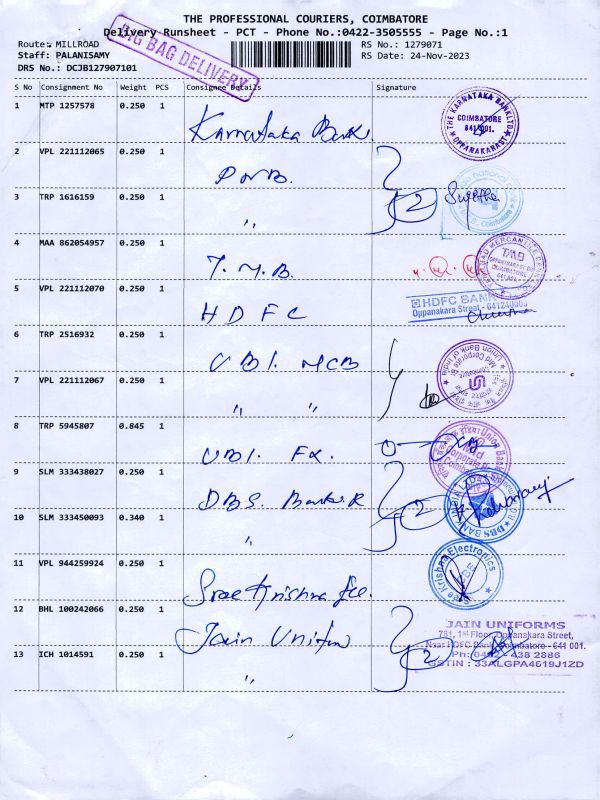 THE PROFESSIONAL COURIERS, COIMBATORE
Delivery Runsheet - PCT - Phone No.:0422-3505555 - Page No.:1
Route: MILLROAD
RS No.: 1279071
Staff: PALANISAMY
RS Date: 24-Nov-2023
DRS No.: DCJB127907101
BIG BAG DELIVERY
S No Consignment No Weight PCS Consignee Details Signature
1 MTP 1257578 0.250 1 Karnataka Bank.
THE KARNATAKA BANK LTD
COIMBATORE
641 001.
OPPANAKARA ST
2 VPL 221112065 0.250 1 PNB.
3 TRP 1616159 0.250 1 " 2 Swetha
4 MAA 862054957 0.250 1 T.M.B.
TMB
COIMBATORE
5 VPL 221112070 0.250 1 HDFC
HDFC BANK
Oppanakara Street - 641240003
6 TRP 2516932 0.250 1 UBI. MCB
Union Bank of India
7 VPL 221112067 0.250 1 " "
8 TRP 5945807 0.845 1 UBI. FX.
9 SLM 333438027 0.250 1 DBS. Bank
DBS BANK INDIA
10 SLM 333450093 0.340 1 " 2
11 VPL 944259924 0.250 1 Sree Krishna Ele.
Sree Krishna Electronics
CBE
12 BHL 100242066 0.250 1 Jain Uniform
JAIN UNIFORMS
781, 1st Floor, Oppanakara Street,
Near HDFC Bank, Coimbatore - 641 001.
Ph: 0422 - 438 2886
GSTIN : 33ALGPA4619J1ZD
13 ICH 1014591 0.250 1 " 2